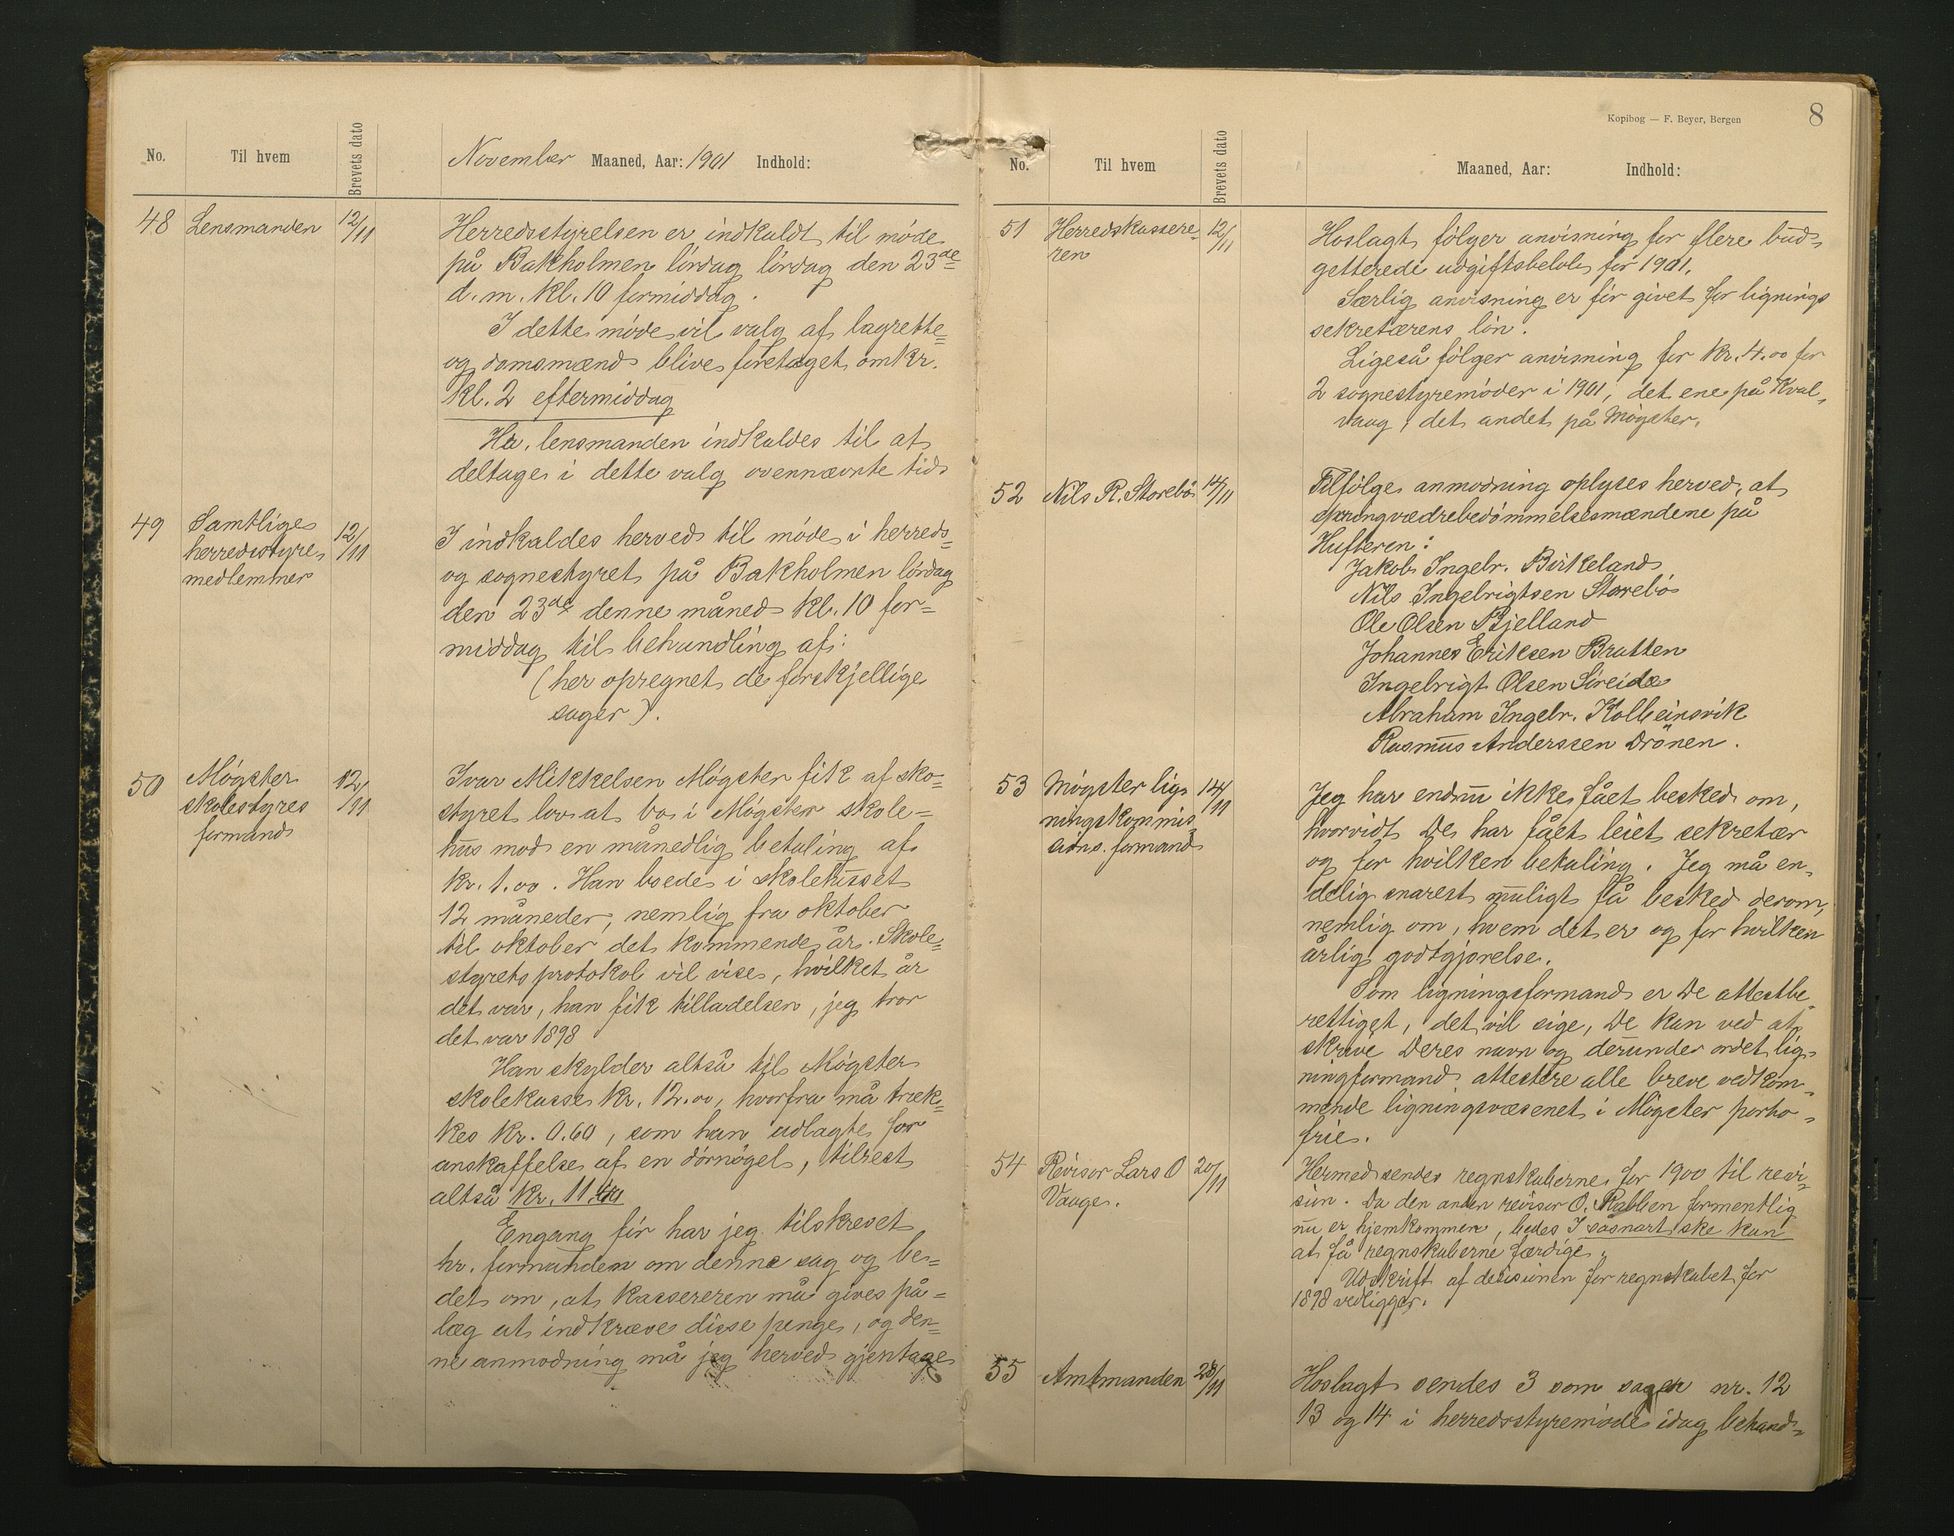 No. Til hvem Brevets dato November Maaned, Aar: 1901 Indhold:
48 Lensmanden 12/11
Herredsstyrelsen er indkaldt til møde
på Bakholmen lördag lördag den 23de
d. m. kl. 10 formiddag.
I dette møde vil valg af lagrette=
og domsmænd blive foretaget omkr.
kl. 2 eftermiddag
Hr. lensmanden indkaldes til at
deltage i dette valg ovennævnte tid
49 Samtlige 12/11
herredsstyre-
medlemmer
I indkaldes herved til möde i herreds=
og sognestyret på Bakholmen lördag
den 23de denne måned kl. 10 for=
middag til behandling af:
(her opregnet de forskjellige
sager).
50 Møgster 12/11
skolestyres
formand
Ivar Mikkelsen Møgster fik af sko=
styret lov at bo i Møgster skole=
hus mod en månedlig betaling af
kr. 1.00. Han boede i skolehusset
12 måneder, nemlig fra oktober
til oktober det kommende år. Skole=
styrets protokol vil vise, hvilket år
det var, han fik tilladelsen, jeg tror
det var 1898
Han skylder altså til Møgster
skolekasse kr. 12.00, hvorfra må træk=
kes kr. 0.60, som han udlagte for
anskaffelse af en dörnögel, tilrest
altså kr. 11.40
Engang för har jeg tilskrevet
hr. formanden om denne sag og be=
det om, at kassereren må gives på=
læg at indkræve disse penge, og den=
ne anmodning må jeg herved gjentage
Kopibog — F. Beyer, Bergen 8
No. Til hvem Brevets dato Maaned, Aar: Indhold:
51 Herredskassere- 12/11
ren
Hoslagt følger anvisning for flere bud-
getterede udgiftsbelöb for 1901.
Særlig anvisning er för givet for lignings
sekretærens lön.
Ligeså fölger anvisning for kr. 4.00 for
2 sognestyremöder i 1901, det ene på Kval-
vaag, det andet på Møgster.
52 Nils R. Storebö 14/11
Tilfölge anmodning oplyses herved, at
springvædrebedömmelsesmændene på
Hufteren:
Jakob Ingebr. Birkeland
Nils Ingebrigtsen Storebö
Ole Olsen Bjelland
Johannes Eriksen Bratten
Ingebrigt Olsen Sireide
Abraham Ingebr. Kolbeinsvik
Rasmus Anderssen Drönen.
53 Møgster lig- 14/11
ningskommis
sions. formand
Jeg har endnu ikke fået besked om,
hvorvidt De har fået leiet sekretær
og for hvilken betaling. Jeg må en-
delig snarest muligt få besked derom,
nemlig om, hvem det er og for hvilken
årlig godtgjørelse.
Som ligningsformand er De attestbe-
rettiget, det vil sige, De kan ved at
skrive Deres navn og derunder ordet lig-
ningformand attestere alle breve vedkom-
mende ligningsvæsenet i Møgster porto-
frie.
54 Revisor Lars O 20/11
Vaage.
Hermed sendes regnskaberne for 1900 til revi-
sion. Da den anden revisor O. Rabben formentlig
nu er hjemkommen, bedes I såsnart ske kan
at få regnskaberne færdige.
Udskrift af desisionen for regnskabet for
1898 vedligger.
55 Amtmanden 23/11
Hoslagt sendes 3 som sager nr. 12
13 og 14 i herredsstyremöde idag behand-